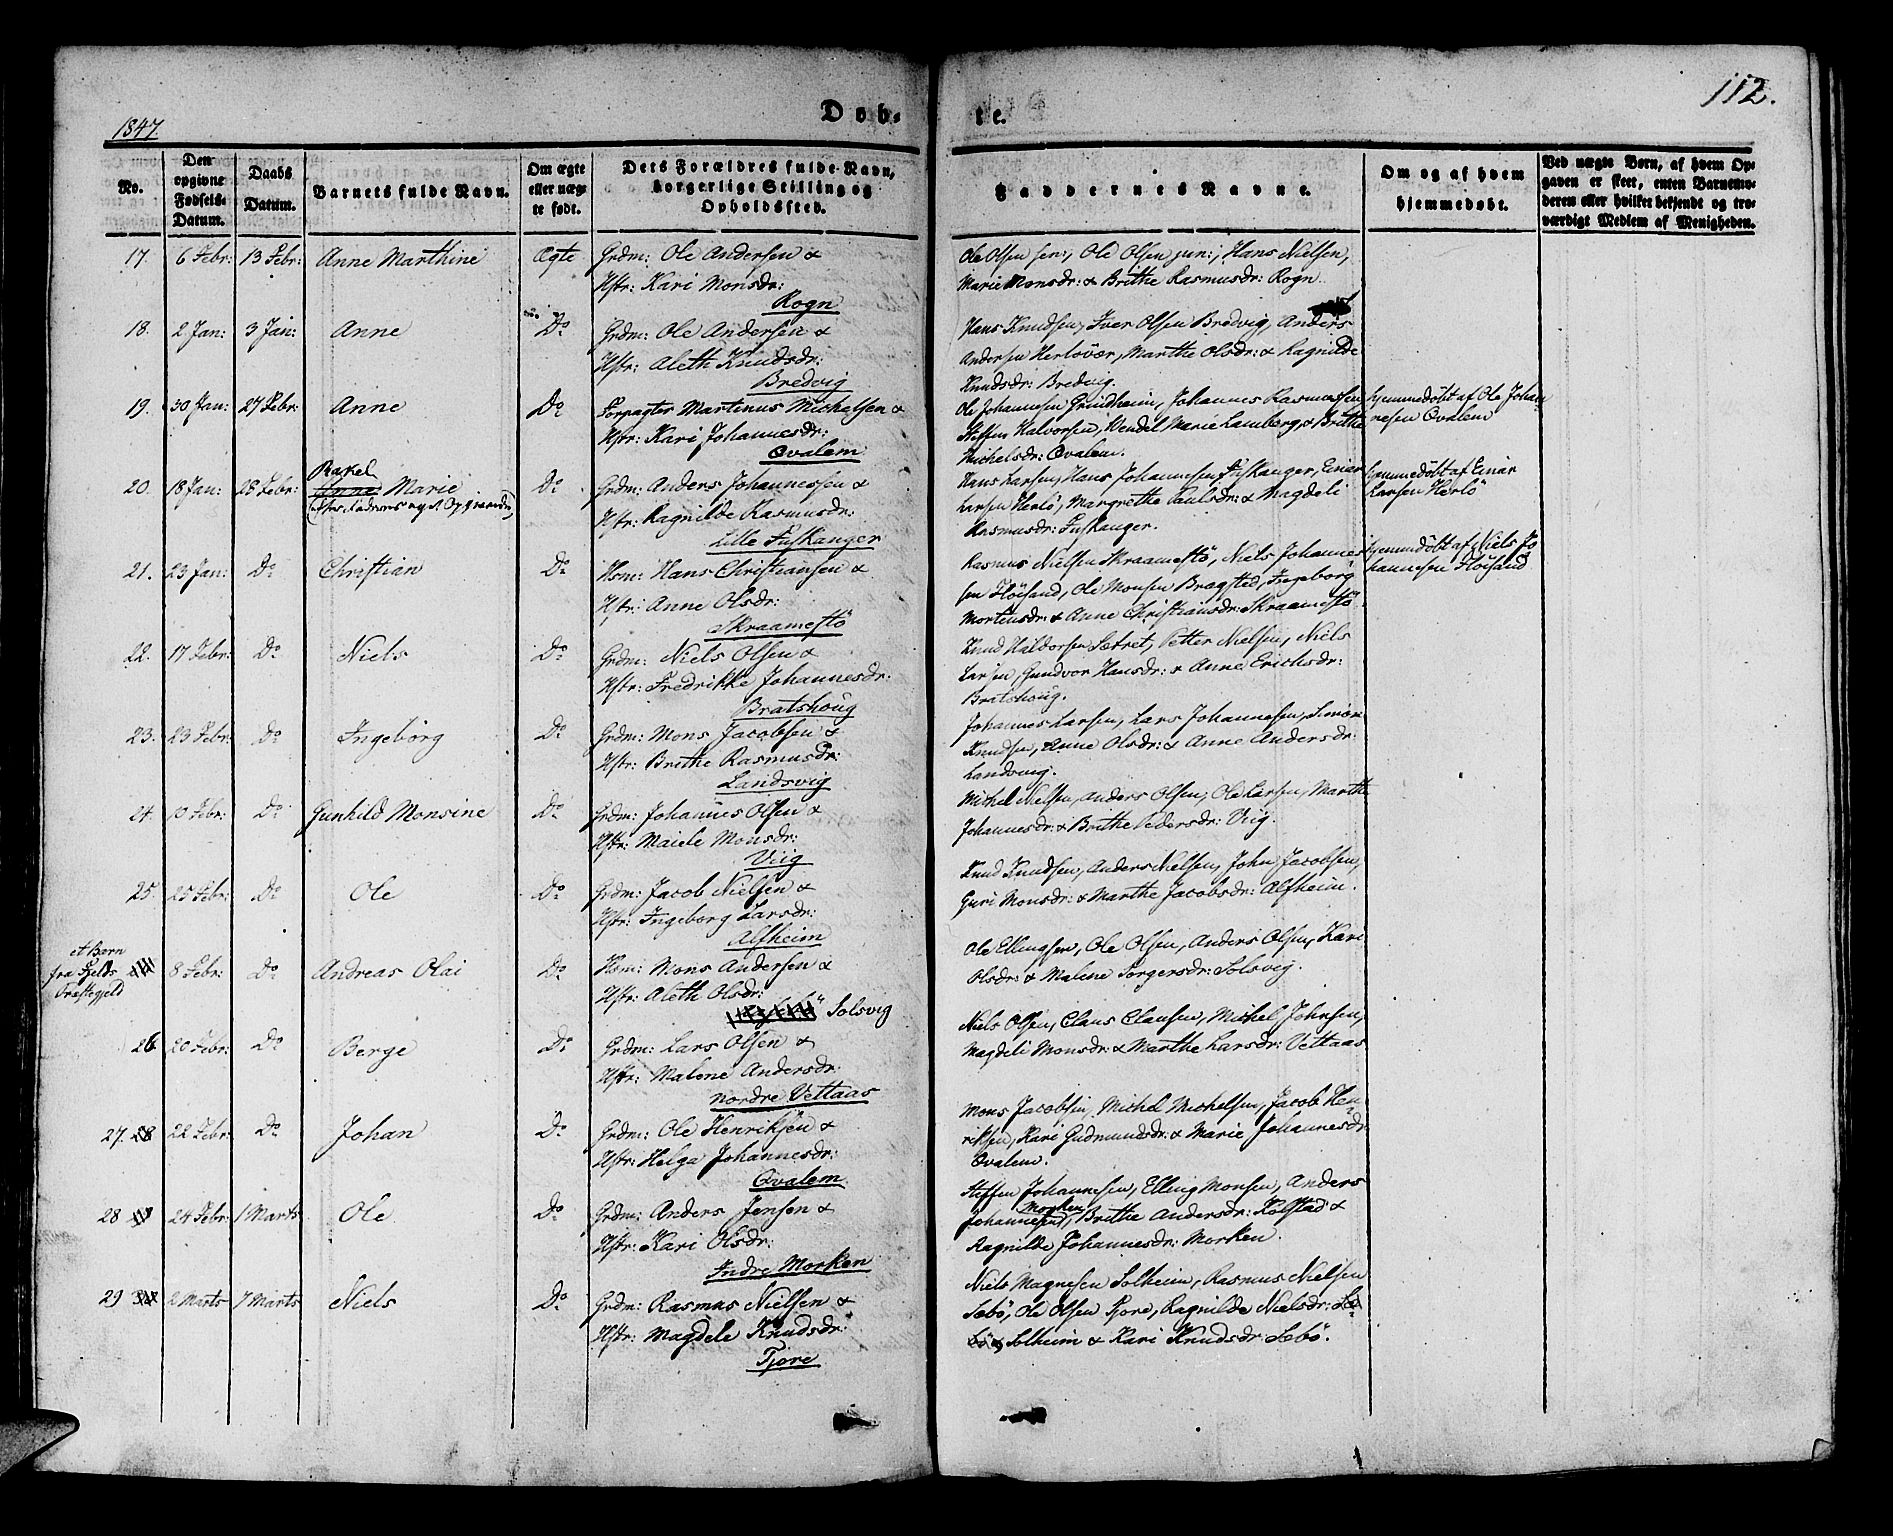 1847.
Døb-
te.
112.
No.
Den opgivne Fødsels-Datum.
Daabs Datum.
Barnets fulde Navn.
Om ægte eller uægte født.
Dets Forældres fulde Navn, borgerlige Stilling og Opholdssted.
Faddernes Navne.
Om og af hvem hjemmedøbt.
Ved uægte Børn, af hvem Op-
gaven er skeet, enten Barnemo-
deren eller hvilket bekjendt og tro-
værdigt Medlem af Menigheden.
17. 6 Febr: 13 Febr: Anne Marthine Ægte Grdm: Ole Andersen &
Hstr: Kari Monsdr:
Rogn
Ole Olsen sen:, Ole Olsen jun:, Hans Nielsen,
Marie Monsdr: & Brithe Rasmusdr: Rogn.
18. 2 Jan: 3 Jan: Anne Do Grdm: Ole Andersen &
Hstr: Aleth Knudsdr:
Bredvig
Hans Knudsen, Iver Olsen Bredvig, Anders
Andersen Herlövær, Marthe Olsdr: & Ragnilde
Knudsdr: Bredvig.
19. 30 Jan: 27 Febr: Anne Do Forpagter Martinus Michelsen &
Hstr: Kari Johannesdr:
Qvalem
Ole Johannesen Grindheim, Johannes Rasmussen
Steffen Halvorsen, Wendel Marie Lamberg, & Brithe
Michelsdr: Qvalem.
hjemmedöbt af Ole Johan-
nesen Qvalem
20. 18 Jan: 28 Febr: Rakel
Anne Marie
Do Grdm: Anders Johannessen &
Hstr: Ragnilde Rasmusdr:
Lille Fuskanger
Hans Larsen, Hans Johannesen Fuskanger, Einar
Larsen Herlö, Margrethe Paulsdr: & Magdeli
Rasmusdr: Fuskanger.
hjemmedöbt af Einar
Larsen Herlö
21. 23 Jan: Do Christian Do Hsm: Hans Christiansen &
Hstr: Anne Olsdr:
Skraamestö
Rasmus Nielsen Skraamestö, Niels Johannes-
sen Höisand, Ole Monsen Bragsted, Ingeborg
Mortensdr: & Anne Christiansdr: Skraamestö.
hjemmedöbt af Niels Jo
hannesen Höisand
22. 17 Febr: Do Niels Do Grdm: Niels Olsen &
Hstr: Fredrikke Johannesdr:
Bratshoug
Knud Haldorsen Sætret, Petter Nielsen, Niels
Larsen, Gundvor Hansdr: & Anne Erichsdr:
Bratshoug.
23. 23 Febr: Do Ingeborg Do Grdm: Mons Jacobsen &
Hstr: Brithe Rasmusdr:
Landsvig
Johannes Larsen, Lars Johannesen, Simon
Knudsen, Anne Olsdr: & Anne Andersdr:
Landsvig.
24. 10 Febr: Do Gunhild Monsine Do Grdm: Johannes Olsen &
Hstr: Maiele Monsdr:
Viig
Michel Nielsen, Anders Olsen, Ole Larsen, Marthe
Johannesdr: & Brithe Pedersdr: Viig.
25. 25 Febr: Do Ole Do Grdm: Jacob Nielsen &
Hstr: Ingeborg Larsdr:
Alfheim
Knud Knudsen, Anders Nielsen, John Jacobsen,
Guri Monsdr: & Marthe Jacobsdr: Alfheim.
et Barn
fra Fjelds
Præstegjeld
8 Febr: Do Andreas Olai Do Hsm: Mons Andersen &
Hstr: Aleth Olsdr:
Solsvig
Ole Ellingsen, Ole Olsen, Anders Olsen, Kari
Olsdr: & Malene Torgersdr: Solsvig.
26 20 Febr: Do Berge Do Grdm: Lars Olsen &
Hstr: Malene Andersdr:
nordre Vettaas
Niels Olsen, Claus Clausen, Michel Johnsen,
Magdeli Monsdr: & Marthe Larsdr: Vettaas
27. 28 22 Febr: Do Johan Do Grdm: Ole Henriksen &
Hstr: Helga Johannesdr:
Qvalem
Mons Jacobsen, Michel Michelsen, Jacob Hen-
riksen, Kari Gudmundsdr: & Marie Johannesdr:
Qvalem.
28 24 Febr: 1 Marts Ole Do Grdm: Anders Jensen &
Hstr: Kari Olsdr:
Indre Morken
Steffen Johannesen, Elling Monsen, Anders
Morken
Johannesen, Brithe Andersdr: Kolstad &
Ragnilde Johannesdr: Morken.
29 2 Marts 7 Marts Niels Do Grdm: Rasmus Nielsen &
Hstr: Magdele Knudsdr:
Tjore
Niels Magnesen Solheim, Rasmus Nielsen
Sæbö, Ole Olsen Tjore, Ragnilde Nielsdr:
Solheim & Kari Knudsdr: Sæbö.